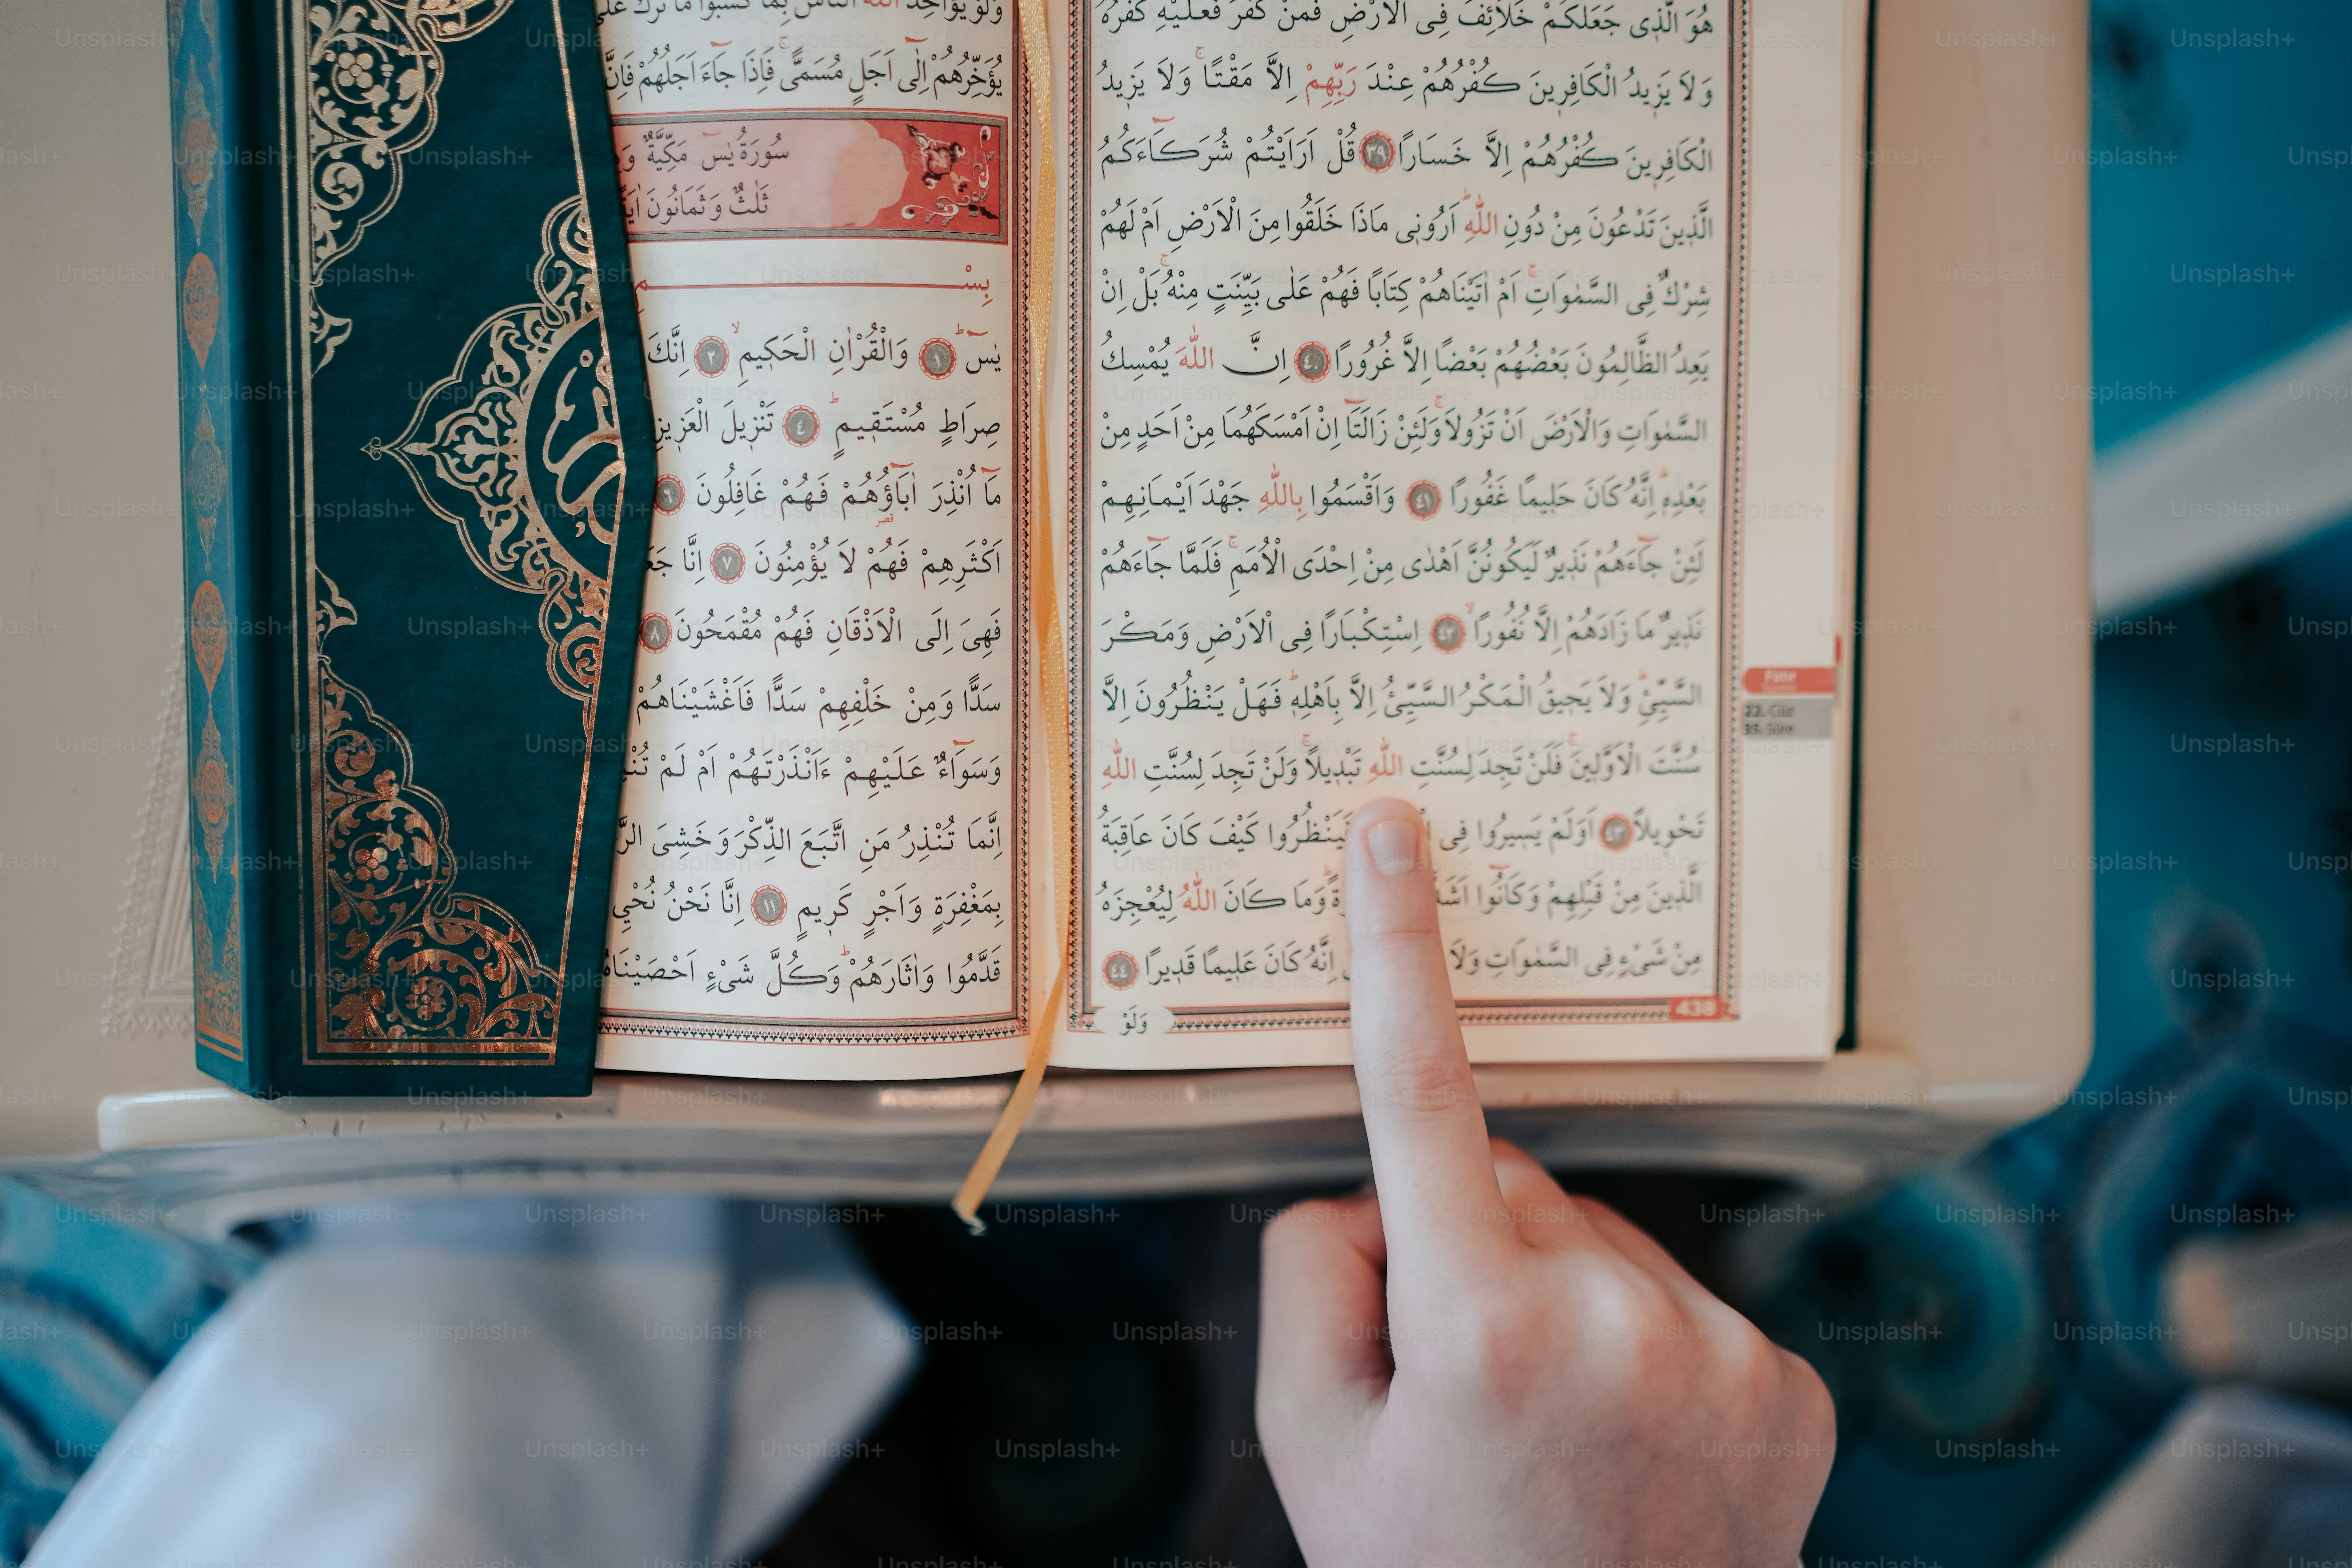 هُوَ الَّذ۪ي جَعَلَكُمْ خَلَٓائِفَ فِي الْاَرْضِ فَمَنْ كَفَرَ فَعَلَيْهِ كُفْرُهُ
وَلَا يَز۪يدُ الْكَافِر۪ينَ كُفْرُهُمْ عِنْدَ رَبِّهِمْ اِلَّا مَقْتًاۚ وَلَا يَز۪يدُ
الْكَافِر۪ينَ كُفْرُهُمْ اِلَّا خَسَارًا ﴿٣٩﴾ قُلْ اَرَاَيْتُمْ شُرَكَٓاءَكُمُ
الَّذ۪ينَ تَدْعُونَ مِنْ دُونِ اللّٰهِۜ اَرُون۪ي مَاذَا خَلَقُوا مِنَ الْاَرْضِ اَمْ لَهُمْ
شِرْكٌ فِي السَّمٰوَاتِۚ اَمْ اٰتَيْنَاهُمْ كِتَابًا فَهُمْ عَلٰى بَيِّنَتٍ مِنْهُۚ بَلْ اِنْ
يَعِدُ الظَّالِمُونَ بَعْضُهُمْ بَعْضًا اِلَّا غُرُورًا ﴿٤٠﴾ اِنَّ اللّٰهَ يُمْسِكُ
السَّمٰوَاتِ وَالْاَرْضَ اَنْ تَزُولَاۚ وَلَئِنْ زَالَتَٓا اِنْ اَمْسَكَهُمَا مِنْ اَحَدٍ مِنْ
بَعْدِه۪ۜ اِنَّهُ كَانَ حَل۪يمًا غَفُورًا ﴿٤١﴾ وَاَقْسَمُوا بِاللّٰهِ جَهْدَ اَيْمَانِهِمْ
لَئِنْ جَٓاءَهُمْ نَذ۪يرٌ لَيَكُونُنَّ اَهْدٰى مِنْ اِحْدَى الْاُمَمِۚ فَلَمَّا جَٓاءَهُمْ
نَذ۪يرٌ مَا زَادَهُمْ اِلَّا نُفُورًاۙ ﴿٤٢﴾ اِسْتِكْبَارًا فِي الْاَرْضِ وَمَكْرَ
السَّيِّئِۜ وَلَا يَح۪يقُ الْمَكْرُ السَّيِّئُ اِلَّا بِاَهْلِه۪ۜ فَهَلْ يَنْظُرُونَ اِلَّا
سُنَّتَ الْاَوَّل۪ينَۚ فَلَنْ تَجِدَ لِسُنَّتِ اللّٰهِ تَبْد۪يلًاۚ وَلَنْ تَجِدَ لِسُنَّتِ اللّٰهِ
تَحْو۪يلًا ﴿٤٣﴾ اَوَلَمْ يَس۪يرُوا فِي فَيَنْظُرُوا كَيْفَ كَانَ عَاقِبَةُ
الَّذ۪ينَ مِنْ قَبْلِهِمْ وَكَانُٓوا اَشَدَّ وَمَا كَانَ اللّٰهُ لِيُعْجِزَهُ
مِنْ شَيْءٍ فِي السَّمٰوَاتِ وَلَا اِنَّهُ كَانَ عَل۪يمًا قَد۪يرًا ﴿٤٤﴾
وَلَوْ
438
Fâtır
Sûresi
22. Cüz
35. Sûre
وَلَوْ يُؤَاخِذُ اللّٰهُ النَّاسَ بِمَا كَسَبُوا مَا تَرَكَ عَلٰى
يُؤَخِّرُهُمْ اِلٰٓى اَجَلٍ مُسَمًّىۚ فَاِذَا جَٓاءَ اَجَلُهُمْ فَاِنَّ
سُورَةُ يٰسٓ مَكِّيَّةٌ
ثَلٰثٌ وَثَمَانُونَ اٰيَةً
بِسْمِ
يٰسٓۜ ﴿١﴾ وَالْقُرْاٰنِ الْحَك۪يمِۙ ﴿٢﴾ اِنَّكَ
صِرَاطٍ مُسْتَق۪يمٍۜ ﴿٤﴾ تَنْز۪يلَ الْعَز۪يزِ
مَٓا اُنْذِرَ اٰبَٓاؤُ۬هُمْ فَهُمْ غَافِلُونَ ﴿٦﴾
اَكْثَرِهِمْ فَهُمْ لَا يُؤْمِنُونَ ﴿٧﴾ اِنَّا
فَهِيَ اِلَى الْاَذْقَانِ فَهُمْ مُقْمَحُونَ ﴿٨﴾
سَدًّا وَمِنْ خَلْفِهِمْ سَدًّا فَاَغْشَيْنَاهُمْ
وَسَوَٓاءٌ عَلَيْهِمْ ءَاَنْذَرْتَهُمْ اَمْ لَمْ
اِنَّمَا تُنْذِرُ مَنِ اتَّبَعَ الذِّكْرَ وَخَشِيَ
بِمَغْفِرَةٍ وَاَجْرٍ كَر۪يمٍ ﴿١١﴾ اِنَّا نَحْنُ نُحْيِ
قَدَّمُوا وَاٰثَارَهُمْۜ وَكُلَّ شَيْءٍ اَحْصَيْنَاهُ